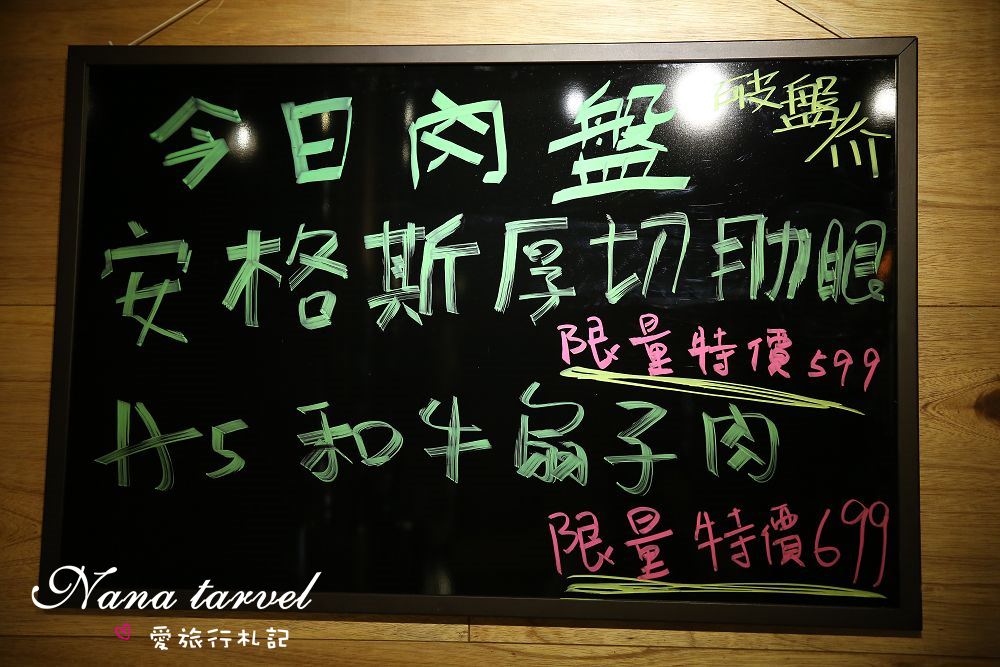 今日肉盤
破盤价
安格斯厚切肋眼
限量特價599
A5和牛扇子肉
限量特價699
Nana tarvel
愛旅行札記